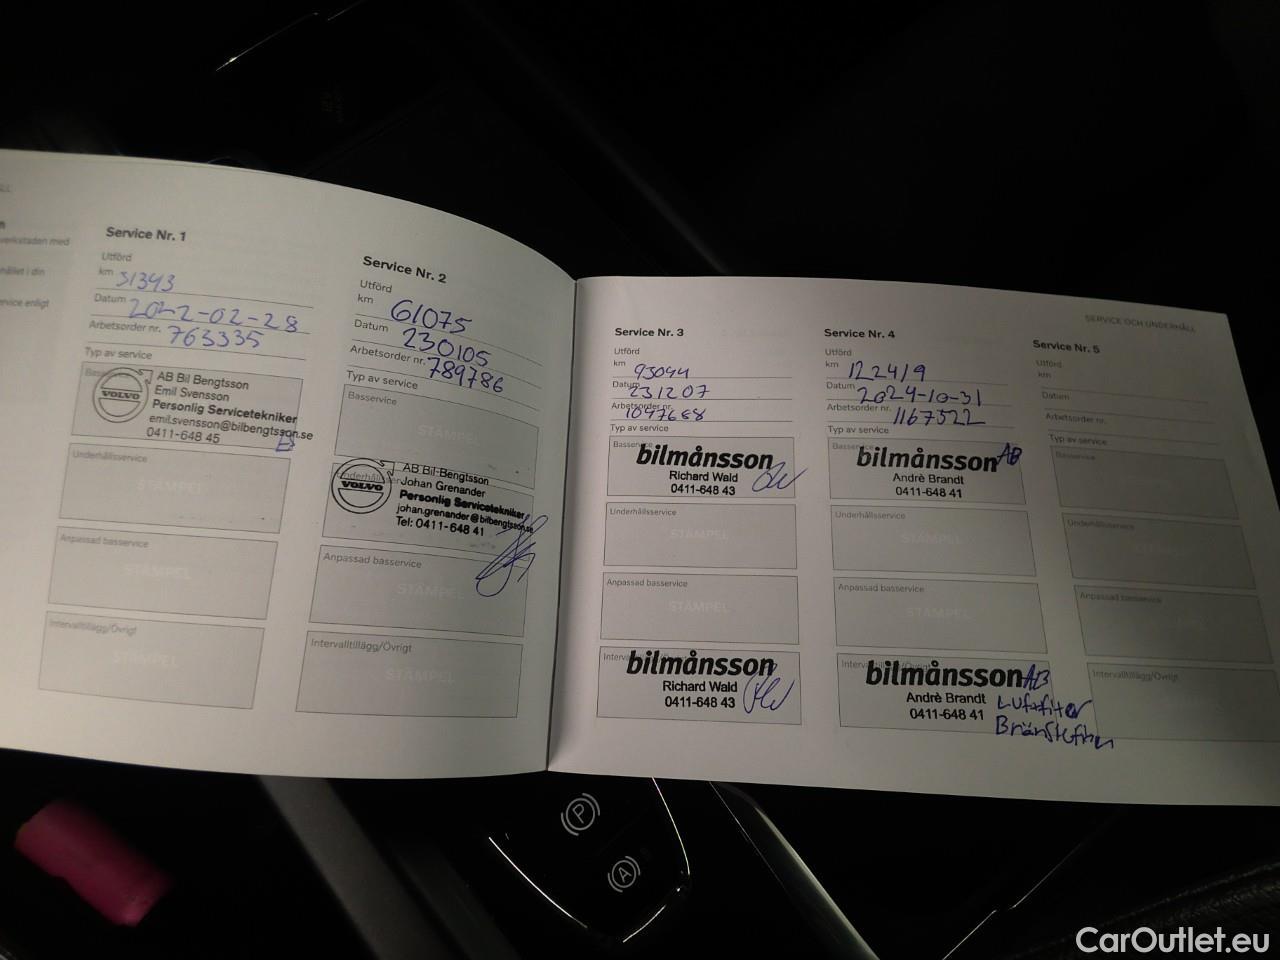 verkstaden med
hållet i din
ervice enligt
Service Nr. 1
Utförd
km 31343
Datum 2022-02-28
Arbetsorder nr. 763335
Typ av service
AB Bil Bengtsson
Emil Svensson
Personlig Servicetekniker
emil.svensson@bilbengtsson.se
0411-648 45
VOLVO
Underhållsservice
STÄMPEL
Anpassad basservice
STÄMPEL
Intervalltillägg/Övrigt
STÄMPEL
Service Nr. 2
Utförd
km 61075
Datum 230105
Arbetsorder nr. 789786
Typ av service
Basservice
STÄMPEL
Underhållsser
VOLVO
AB Bil Bengtsson
Johan Grenander
Personlig Servicetekniker
johan.grenander@bilbengtsson.se
Tel: 0411-648 41
Anpassad basservice
STÄMPEL
Intervalltillägg/Övrigt
STÄMPEL
SERVICE OCH UNDERHÅLL
Service Nr. 3
Utförd
km 93044
Datum 231207
Arbetsorder nr. 1047668
Typ av service
Basservice
bilmånsson
Richard Wald
0411-648 43
Underhållsservice
STÄMPEL
Anpassad basservice
STÄMPEL
Interv
bilmånsson
Richard Wald
0411-648 43
Service Nr. 4
Utförd
km 122419
Datum 2024-10-31
Arbetsorder nr. 1167522
Typ av service
Basservice
bilmånsson AB
Andrè Brandt
0411-648 41
Underhållsservice
STÄMPEL
Anpassad basservice
STÄMPEL
bilmånsson AB
Andrè Brandt
0411-648 41
Luftfilter
Service Nr. 5
Utförd
km
Datum
Arbetsorder nr.
Typ av service
Basservice
Underhållsservice
Anpassad basservice
Intervalltillägg/Övrigt
P
A
CarOutlet.eu